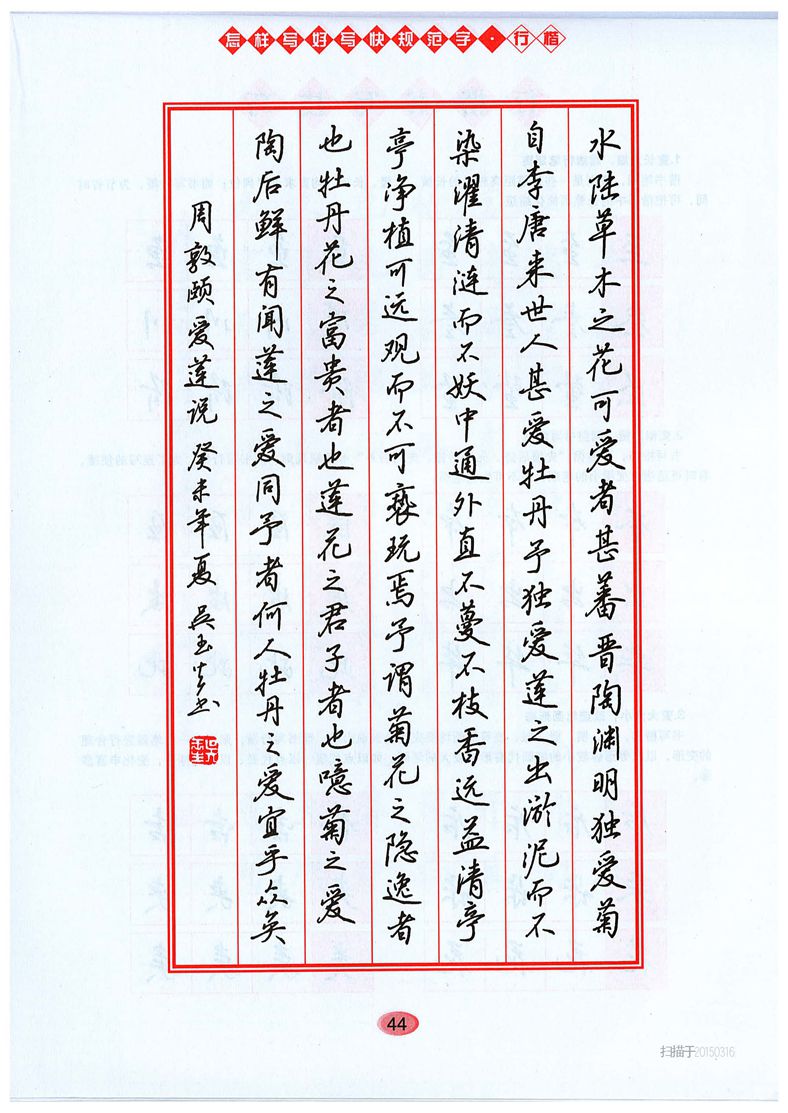 怎样写好写快规范字·行楷
水陆草木之花可爱者甚蕃晋陶渊明独爱菊
自李唐来世人甚爱牡丹予独爱莲之出淤泥而不
染濯清涟而不妖中通外直不蔓不枝香远益清亭
亭净植可远观而不可亵玩焉予谓菊花之隐逸者
也牡丹花之富贵者也莲花之君子者也噫菊之爱
陶后鲜有闻莲之爱同予者何人牡丹之爱宜乎众矣
周敦颐爱莲说 癸未年夏 吴玉生书
44
扫描于20150316